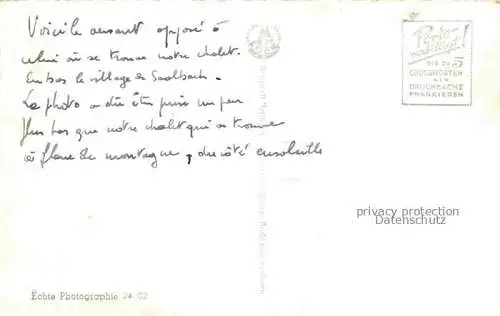 Voici le versant opposé à
celui où se trouve notre chalet.
En bas le village de Saalbach.
La photo a dû être prise un peu
plus bas que notre chalet qui se trouve
à flanc de montagne, du côté ensoleillé
Porto-
ermäßigt!
BIS ZU 5
GRUSSWORTEN
ALS
DRUCKSACHE
FRANKIEREN
privacy protection
Datenschutz
Echte Photographie 24 02